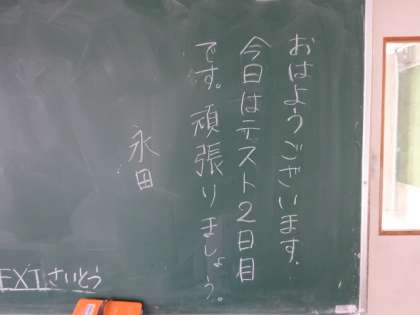 おはようございます.
今日はテスト2日目
です。頑張りましょう。
永田
EXTさいとう